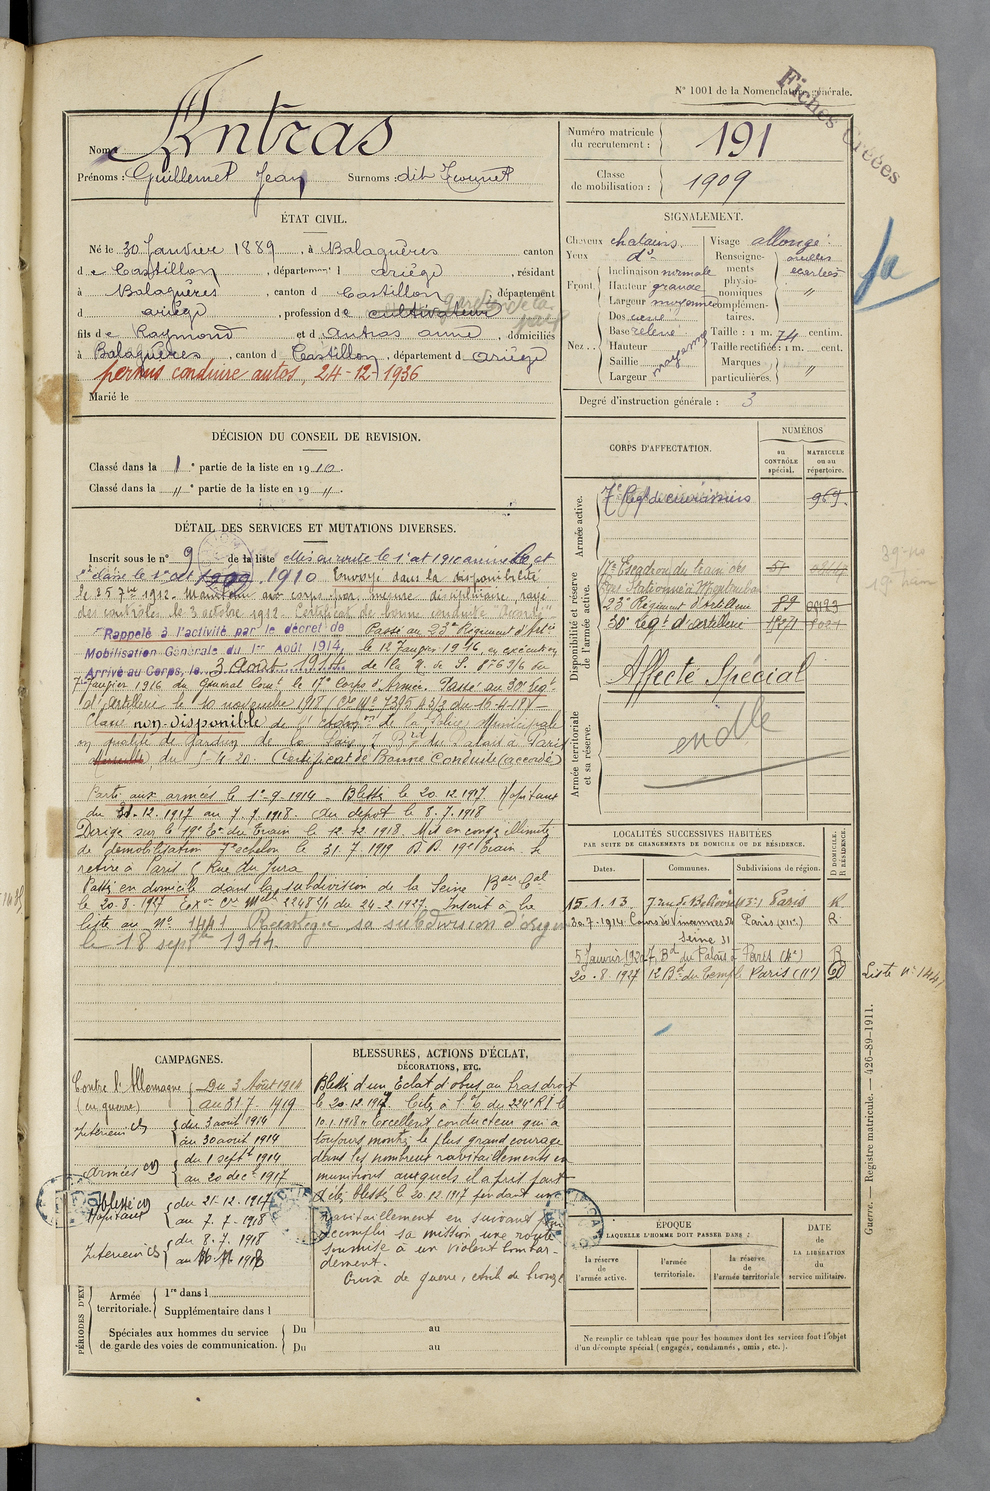 N° 1001 de la Nomenclature générale.
Fiches Créées
Nom : Antras
Prénoms : Guillemet Jean Surnoms : dit
Numéro matricule du recrutement : 191
Classe de mobilisation : 1909
ÉTAT CIVIL.
Né le 30 Janvier 1889, à Balaguères canton
de Castillon, département ariège, résidant
à Balaguères, canton d Castillon, département
d ariège, profession de cultivateur
gardien de la paix
fils de Raymond et d Antras anne, domiciliés
à Balaguères, canton d Castillon, département d ariège
permis conduire autos, 24-12-1936
Marié le
SIGNALEMENT.
Cheveux chatains.
Yeux d°
Front. Inclinaison normale
Hauteur grande
Largeur moyenne
Nez. Dos
Base relevé
Hauteur
Saillie moyenne
Largeur
Visage allongé.
Renseignements physionomiques complémentaires. oreilles écartées
"
Taille : 1 m. 74 centim.
Taille rectifiée : 1 m. cent.
Marques particulières. "
Degré d'instruction générale : 3
DÉCISION DU CONSEIL DE REVISION.
Classé dans la 1e partie de la liste en 1910.
Classé dans la " e partie de la liste en 19 ".
CORPS D'AFFECTATION.
NUMÉROS
au CONTRÔLE spécial.
MATRICULE ou au répertoire.
Armée active.
7e Regt de cuirassiers 969.
Disponibilité et réserve de l'armée active.
Escadron du train des
Stationné à Montauban
23e Régiment d'artillerie 89
30e Regt d'artillerie
Affecté Spécial
Armée territoriale et sa réserve.
39-40
19e train
DÉTAIL DES SERVICES ET MUTATIONS DIVERSES.
Inscrit sous le n° 9 de la liste
1910. Envoyé dans la disponibilité
le 25 7bre 1912. Maintenu au corps par mesure disciplinaire, rayé
des contrôles le 3 octobre 1912. Certificat de bonne conduite "Accordé"
Rappelé à l'activité par le décret de
Mobilisation Générale du 1er Août 1914.
Arrivé au Corps, le 3 Août 1914
Passé au 23e Régiment d'Artie
le 12 Janvier 1916, en exécution
de la N. de S. 8769/6 du
7 Janvier 1916 du Général Comt le 17e Corps d'Armée. Passé au 30e Regt
d'artillerie le 10 novembre 1918
Classé non-disponible de la Police Municipale
en qualité de Gardien de la Paix, 7 Bd du Palais à Paris
du 5-4-20. Certificat de Bonne Conduite (accordé)
Parti aux armées le 1-9-1914. Blessé le 20.12.1917 Hôpitaux
du 21.12.1917 au 7.7.1918. au dépot le 8.7.1918
Dirigé sur le 19e En du Train le 12.12.1918. Mis en congé illimité
de démobilisation 7e échelon le 31.7.1919 19e Train. Se
retire à Paris 6 Rue du Jura
Passé en domicile dans la subdivision de la Seine Bau Cal
le 20-8-1927 Exon Cre Melle 2248 2/1 du 24-2-1927. Inscrit à la
liste au n° 1441 Réintègre sa subdivision d'origine
le 18 septbre 1944
LOCALITÉS SUCCESSIVES HABITÉES
PAR SUITE DE CHANGEMENTS DE DOMICILE OU DE RÉSIDENCE.
Dates. Communes. Subdivisions de région. D DOMICILE. R RÉSIDENCE.
15.1.13. 7 rue Paris R
30-7-1914 Cours de Vincennes Paris (XIIe) R
Seine
5 Janvier 1920 7, Bd du Palais à Paris (4e) R
20-8-1927 12 Bd du Temple Paris (11e) D
Liste n° 1441
CAMPAGNES.
Contre l'Allemagne (en guerre) Du 3 Août 1914
au 31-7-1919
Intérieur du 3 août 1914
au 30 août 1914
Armées du 1 septbre 1914
au 20 decbre 1917
Blessé Hôpitaux du 21-12-1917
au 7-7-1918
Intérieur du 8-7-1918
BLESSURES, ACTIONS D'ÉCLAT,
DÉCORATIONS, ETC.
Blessé d'un Eclat d'obus au bras droit
le 20.12.1917. Cité à l'O. du 224e RI le
10.1.1918 « Excellent conducteur qui a
toujours montré le plus grand courage
dans les nombreux ravitaillements en
munitions auxquels il a pris part
a été blessé le 20.12.1917 pendant un
ravitaillement en suivant pour
accomplir sa mission une route
soumise à un violent bombar-
dement.
Croix de guerre, étoile de bronze
PÉRIODES D'EX
Armée territoriale. 1re dans l
Supplémentaire dans l
Spéciales aux hommes du service de garde des voies de communication. Du au
Du au
ÉPOQUE
À LAQUELLE L'HOMME DOIT PASSER DANS :
la réserve de l'armée active.
l'armée territoriale.
la réserve de l'armée territoriale
DATE de LA LIBÉRATION du service militaire.
Ne remplir ce tableau que pour les hommes dont les services font l'objet
d'un décompte spécial (engagés, condamnés, omis, etc.).
Guerre. — Registre matricule. — 426-89-1911.